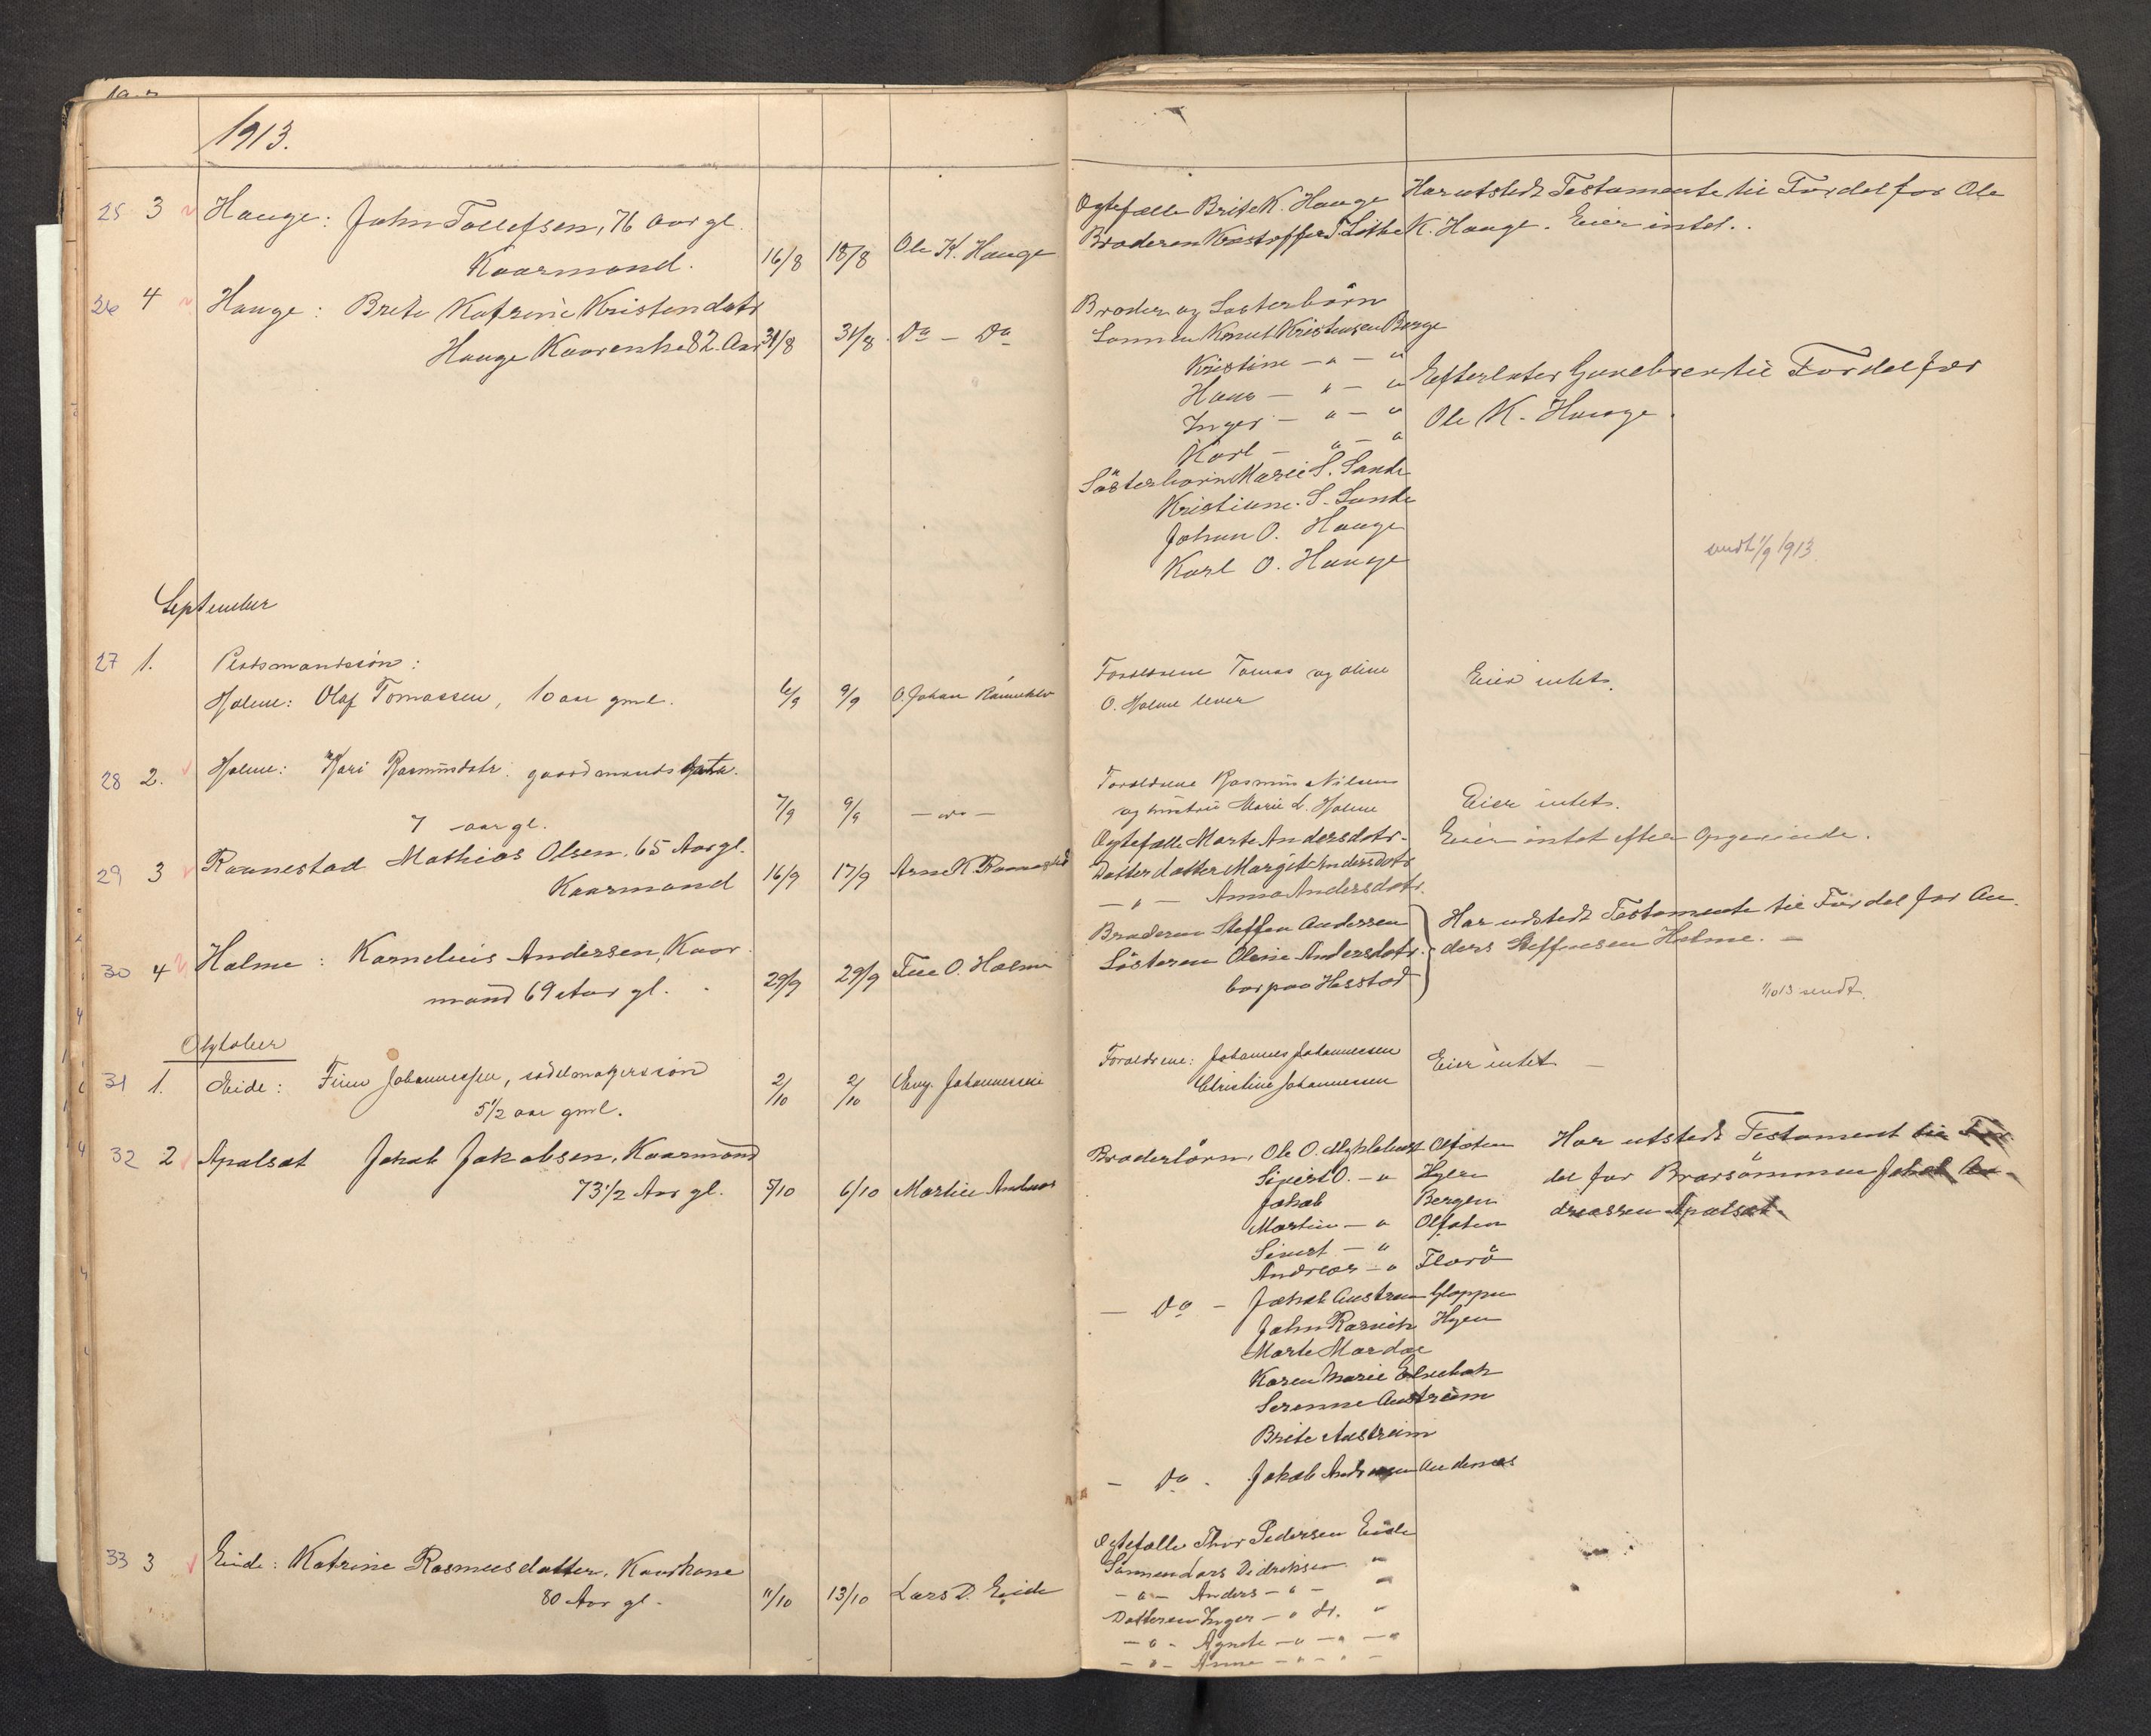 1913.
25 3 Hauge: John Tollefsen, 76 Aar gl.
Kaarmand. 16/8 18/8 Ole K. Hauge
Ogtefælle Brite K. Hauge Har utstedt Testamente til Fordel for Ole
Broderen Kristoffer T. Lothe K. Hauge. Eier intet.
26 4 Hauge: Brite Katrine Kristendatr
Hauge Kaarenke 82 Aar 31/8 31/8 Do - Do
Broder og Søsterbörn
Knut Kristensen Berge
Kristine - " - "
Hans - " - " Efterlater Gjenlever til Fordel for
Inger - " - " Ole K. Hauge.
Karl - " - "
Sösterbörn Marie S. Sande
Kristiane S. Sande
Johan O. Hauge
Karl O. Hauge
sendt 1/9 1913
September
27 1. Pladsmandssön:
Hjelme: Olaf Tomassen, 10 aar gml. 6/9 9/9 O. Johan
Forældrene Tomas og Oline Eier intet.
O. Hjelme lever
28 2. Hjelme: Kari Rasmusdatr. gaardmands datter.
7 aar gl. 7/9 9/9 - do -
Forældrene Rasmus Nilsen
og hustru Marie L. Hjelme Eier intet.
29 3 Raanestad Mathias Olsen, 65 Aar gl.
Kaarmand 16/9 17/9 Arne K. Raanestad
Ogtefælle Marte Andersdatr. Eier intet efter Opgivende.
Datterdatter Margit Andersdatr
- " - Anna Andersdatr.
30 4 Holme: Kornelius Andersen, Kaar
mand 69 Aar gl. 29/9 29/9 O. Holme
Broderen Steffen Andersen Har udstedt Testamente til Fordel for An
Søsteren Oline Andersdatr. ders Steffensen Holme. -
bor paa Hestad
1/10 13 sendt.
Oktober
31 1. Eide: Finn Johannessen, sadelmagersøn
5 1/2 aar gml. 2/10 2/10 Johannessen
Forældrene: Johannes Johannessen Eier intet -
Christine Johannessen
32 2 Apalsæt Jakob Jakobsen, Kaarmand
73 1/2 Aar gl. 5/10 6/10 Martin Andenæs
Broderbörn, Ole O. Myklebust Ålfoten Har utstedt Testament til For
Sivert O. - " Hyen del for Brorsönnen Jakob An
Jakob Bergen dreassen Apalsæt.
Martin - " Ålfoten
Sivert - "
Andreas - " Florö
- Do - Jakob Austrem Gloppen
John Ravnen Hyen
Marte Mardal
Karen Marie Eknebak
Serenne Austreim
Brite Austreim
- Do - Jakob Andreasen Andenæs
33 3 Eide: Katrine Rasmusdatter, Kaarkone
80 Aar gl. 11/10 13/10 Lars D. Eide
Ogtefælle Thor Pedersen Eide
Sönnen Lars Didriksen "
- " - Anders - " - "
Datteren Inger - " dr. "
- " - Agnete - " - " - "
- " - Anne - " - " -